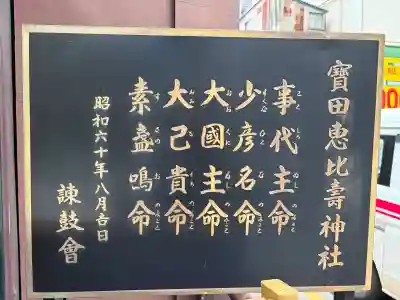 寶田恵比壽神社
事代主命
少彦名命
大國主命
大己貴命
素盞嗚命
昭和六十年八月吉日
諌鼓會